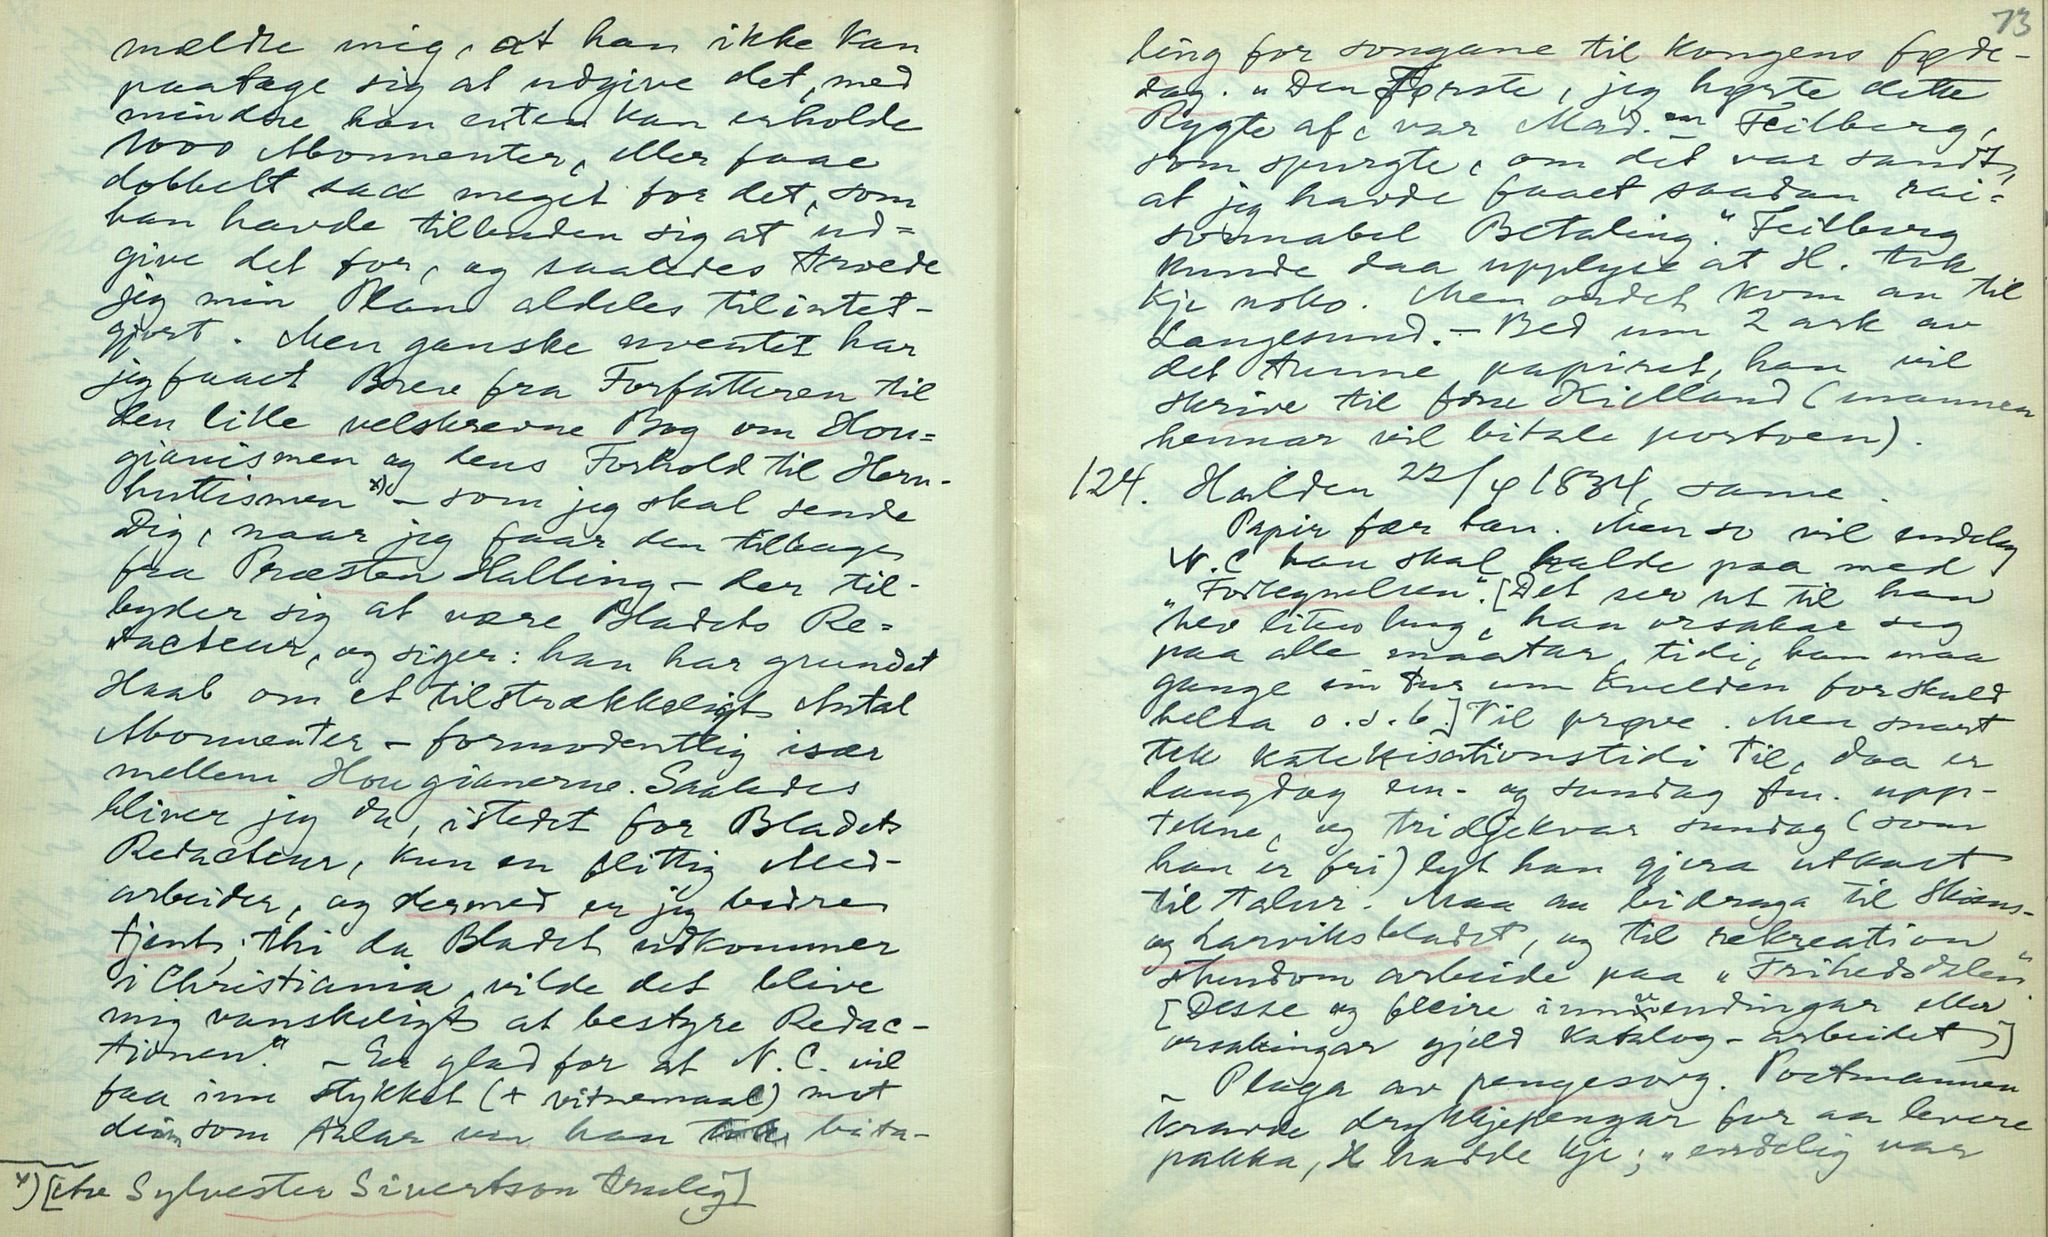 mældte mig, at han ikke kan
paatage sig at udgive det, med
mindre han enten kan erholde
1000 Abonnenter, eller faae
dobbelt saa meget for det, som
han havde tilbuden sig at ud=
give det for, og saaledes troede
jeg min Plan aldeles tilintet-
gjort. Men ganske uventet har
jeg faaet Brev fra Forfatteren til
den lille velskrevne Bog om Hau=
gianismen og dens Forhold til Herrn-
huttismen x) – som jeg skal sende
Dig, naar jeg faar den tilbage
fra Præsten Halling – der til-
byder sig at være Bladets Re=
dacteur, og siger: han har grundet
Haab om et tilstrækkeligt Antal
Abonnenter – formodentlig især
mellem Haugianerne. Saaledes
bliver jeg da, istedet for Bladets
Redacteur, kun en flittig Med-
arbeider, og dermed er jeg bedre
tjent; thi da Bladet udkommer
i Christiania, vilde det blive
mig vanskeligt at bestyre Redac-
tionen." – Er glad for at N. C. vil
faa inn stykket (+ vitnemaal) mot
deim som talar um han tok bita-
x) [av Sylvester Sivertson truleg]
73
ling for songane til Kongens føde-
dag. "Den Første, jeg hørte dette
Rygte af, var Mad. Feilberg,
som spurgte, om det var sandt,
at jeg havde faaet saadan rai=
sonnabel Betaling." Feilberg
kunde daa upplyse at H. tok
kje noko. Men ordet kom an til
Langesund. – Bed um 2 ark av
det tunne papiret, han vil
skrive til frue Kielland (mannen
hennar vil bitale portoen).
124. Halden 22/4 1834, same.
Papir fær han. Men so vil endeleg
N. C han skal halde paa med
"Fortegnelsen". [Det ser ut til han
hev liten hug, han orsakar seg
paa alle maatar, tidi, han maa
gange ein tur um kvelden for skuld
helsa o.s.b.] Til prøve. Men snart
tek katekisationstidi til, daa er
laugdag em. og sundag fm. upp-
tekne, og tridjekvar sundag (som
han er fri) lyt han gjera utkast
til talur. Maa au bidraga til Skiens-
og Larviksbladet, og til rekreation
stundom arbeide paa "Frihedsdalen".
[Desse og fleire innvendingar eller
orsakingar gjeld katalog-arbeidet]
Plaga av pengesorg. Postmannen
kravde drykkjepengar for aa levere
pakka, H hadde kje; "endelig var